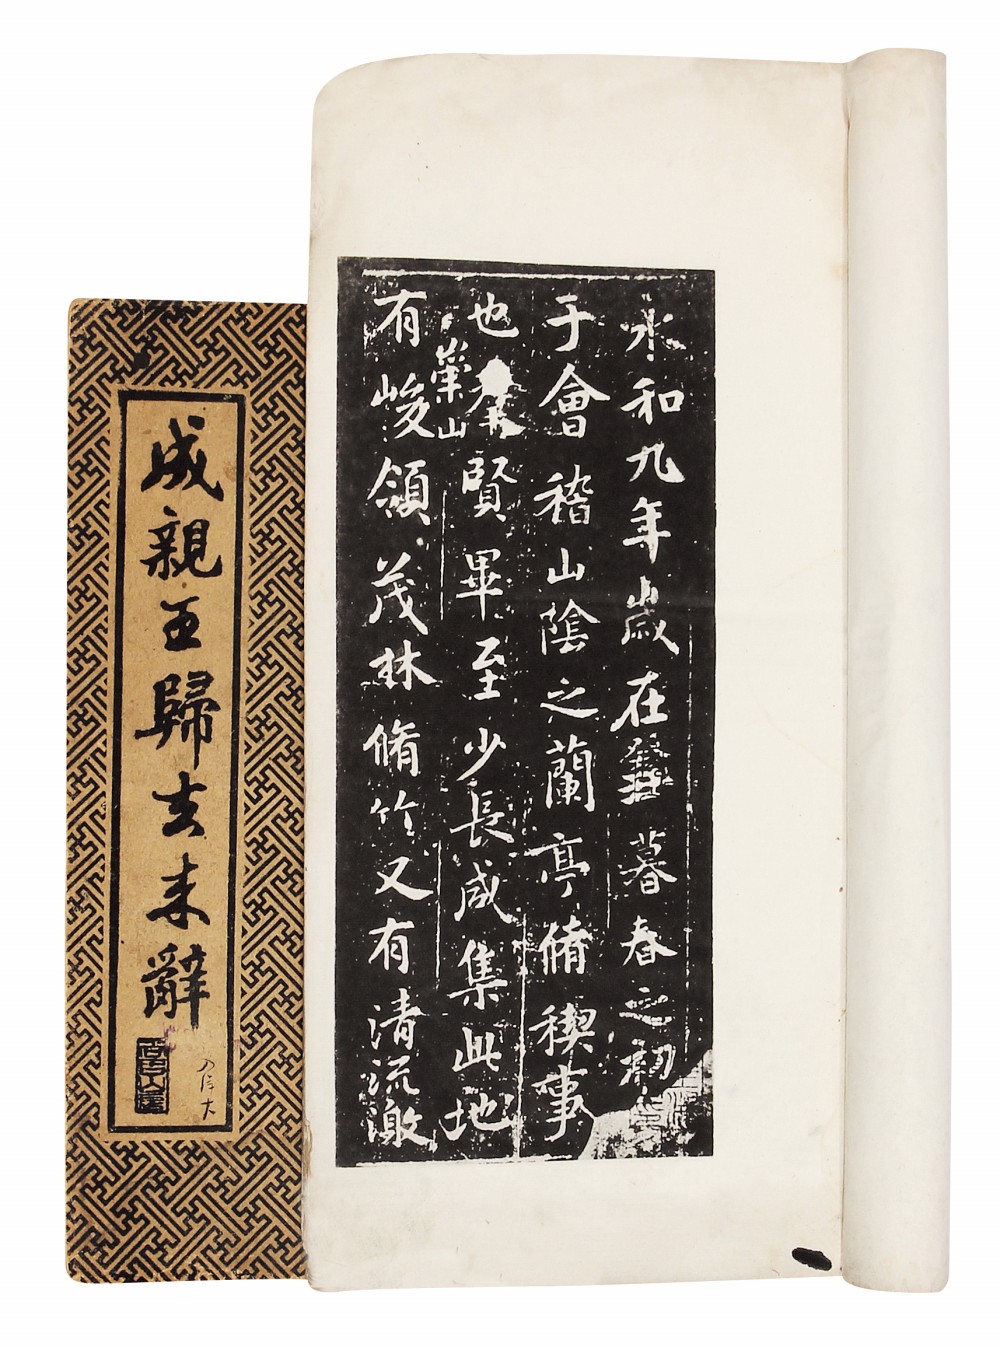 永和九年歲在癸丑暮春之初
于會稽山陰之蘭亭脩稧事
也群賢畢至少長咸集此地
崇山
有峻領茂林脩竹又有清流激
成親王歸去來辭